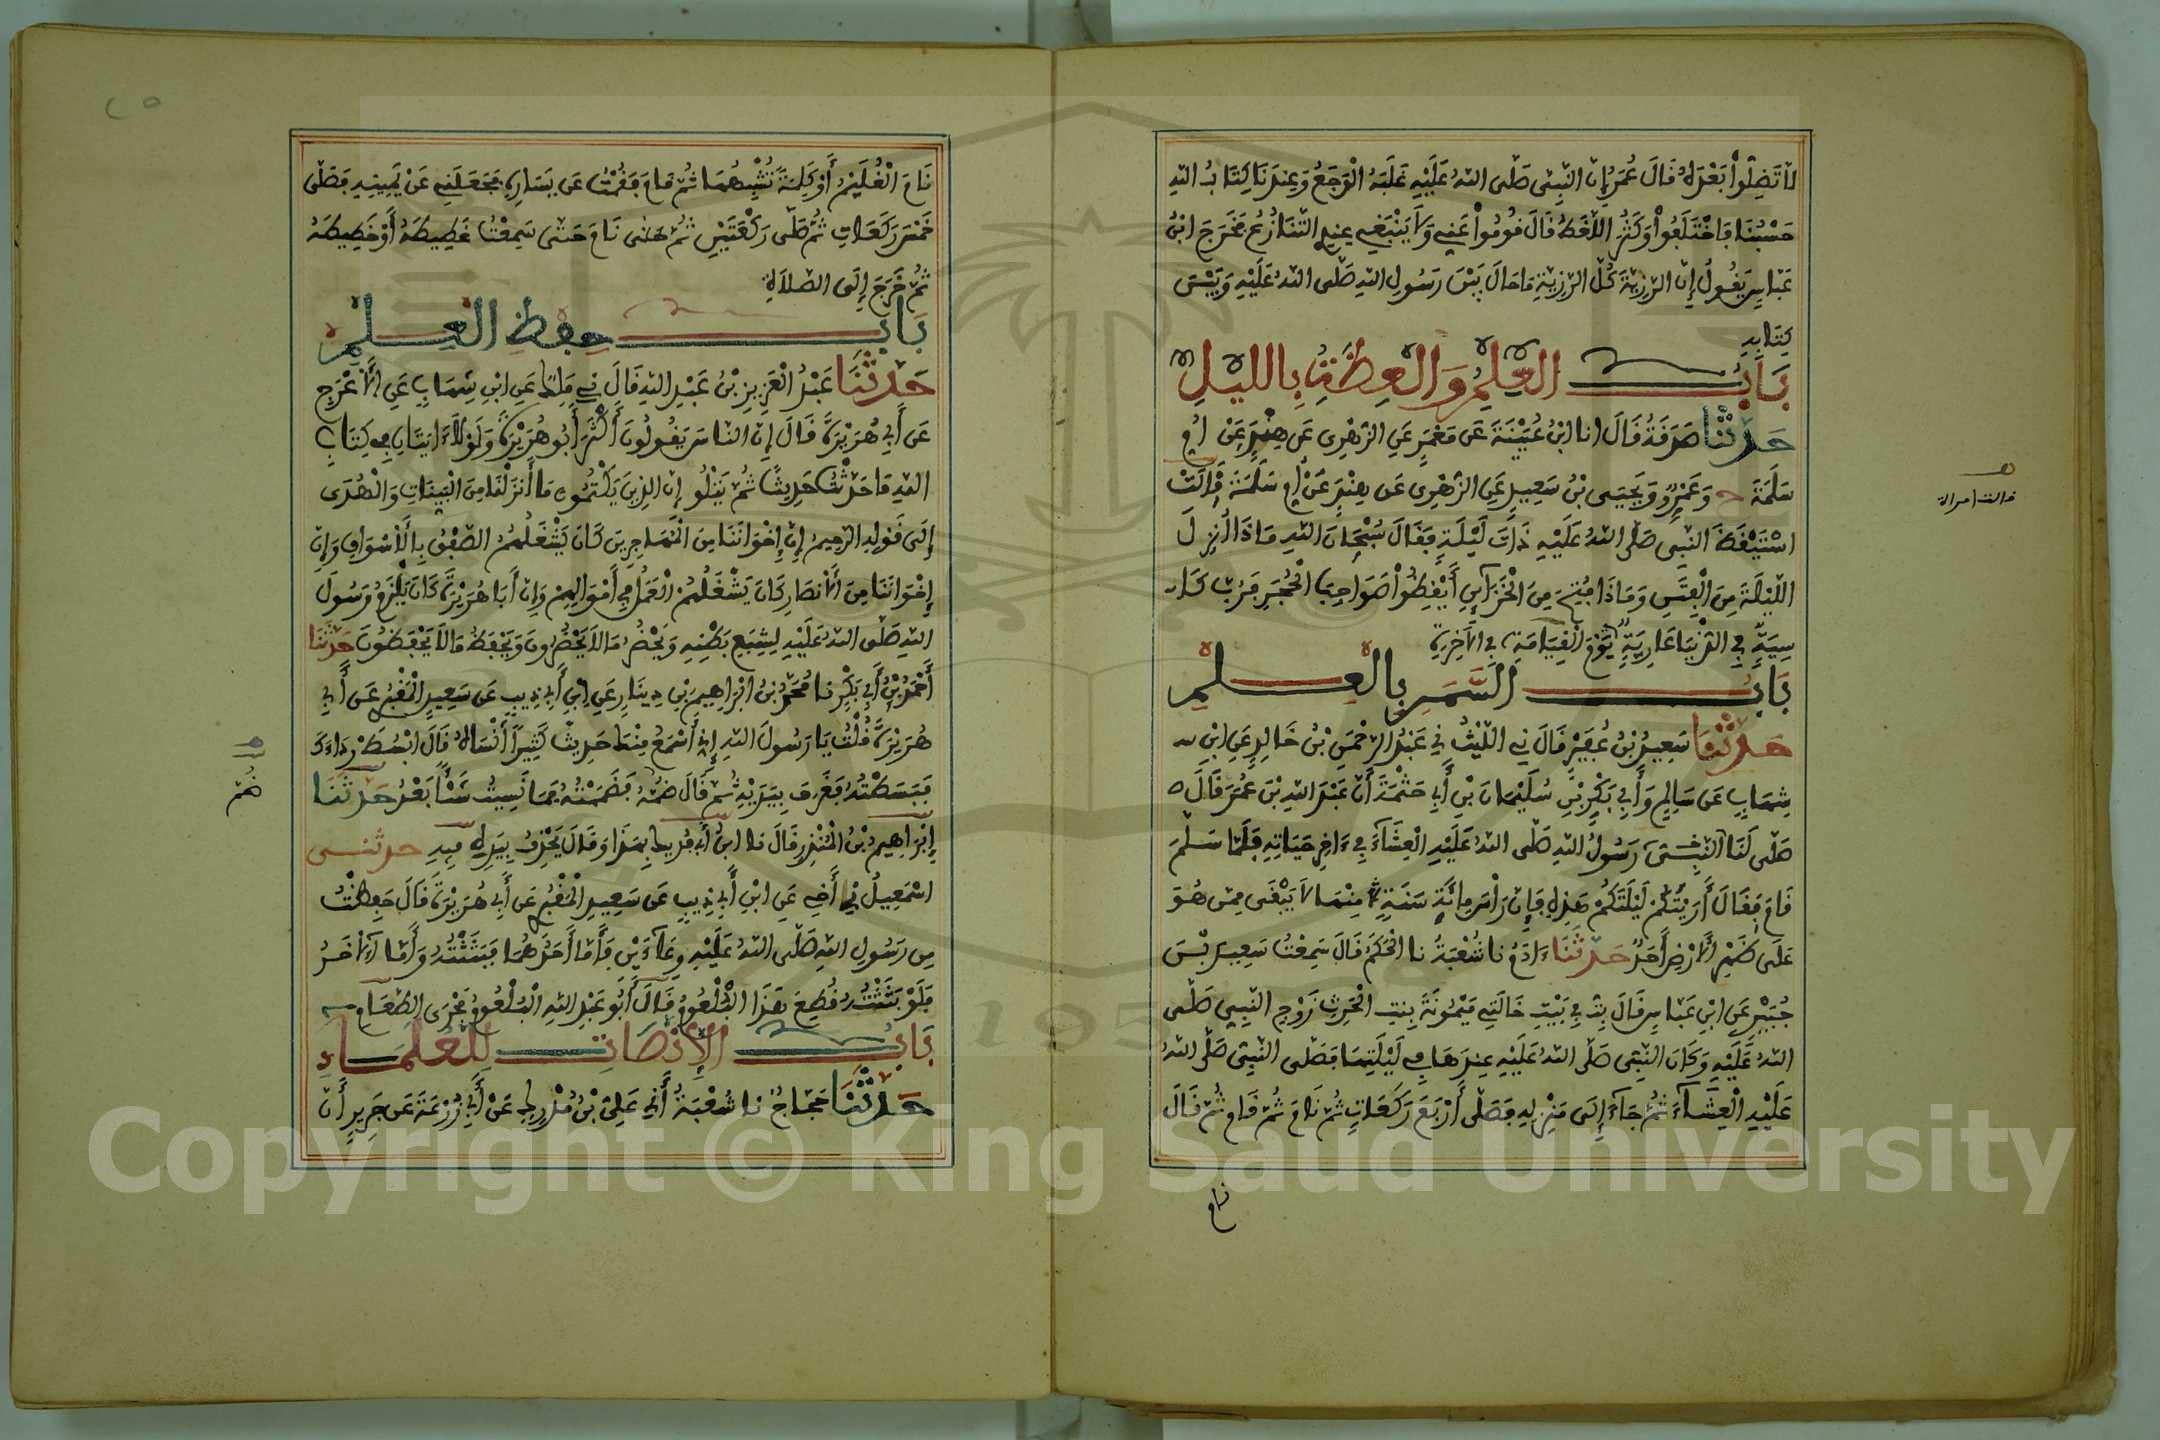 لاَ تَضِلُّواْ بَعْدَهُ قَالَ عُمَرُ إِنّ النّبِىّ صَلّى اللهُ عَلَيْهِ غَلَبَهُ الْوَجَعُ وَعِنْدَنَا كِتَابُ اللهِ
حَسْبُنَا فَاخْتَلَفُواْ وَكَثُرَ اللّغَطُ قَالَ قُومُواْ عَنِّي وَلاَ يَنْبَغِي عِنْدِي التّنَازُعُ فَخَرَجَ ابْنُ
عَبّاسٍ يَقُولُ إِنّ الرّزِيّةَ كُلّ الرّزِيّةِ مَا حَالَ بَيْنَ رَسُولِ اللهِ صَلّى اللهُ عَلَيْهِ وَبَيْنَ
كِتَابِهِ
بَابُ الْعِلْمِ وَالْعِظَةِ بِاللّيْلِ
حَدّثَنَا صَدَقَةُ قَالَ انا ابْنُ عُيَيْنَةَ عَن مَعْمَرٍ عَنِ الزّهْرِى عَن هِنْدٍ عَنْ امِّ
سَلَمَةَ ح وَعَمْرٍو وَيَحْيَى بْنُ سَعِيدٍ عَنِ الزّهْرِى عَن هِنْدٍ عَنْ امِّ سَلَمَةَ قَالَتْ
اسْتَيْقَظَ النّبِى صَلّى اللهُ عَلَيْهِ ذَاتَ لَيْلَةٍ فَقَالَ سُبْحَانَ اللهِ مَاذَا أُنْزِلَ
اللّيْلَةَ مِنَ الْفِتَنِ وَمَاذَا فُتِحَ مِنَ الْخَزَائِنِ أَيْقِظُواْ صَوَاحِبَ الْحُجَرِ فَرُبّ كَا
سِيَةٍ فِي الدّنْيَا عَارِيَةٍ يَوْمَ الْقِيَامَةِ فِي الاَخِرَةِ
بَابُ السَّمَرِ بِالْعِلْمِ
حَدّثَنَا سَعِيدُ بْنُ عُفَيْرٍ قَالَ نِي اللّيْثُ نِي عَبْدُ الرّحْمَنِ بْنُ خَالِدٍ عَنِ ابْنِ
شِهَابٍ عَن سَالِمٍ وَأَبِي بَكْرِ بْنِ سُلَيْمَانَ بْنِ أَبِي حَثْمَةَ أَنّ عَبْدَ اللهِ بْنَ عُمَرَ قَالَ
صَلّى لَنَا النّبِىّ رَسُولُ اللهِ صَلّى اللهُ عَلَيْهِ الْعِشَاءَ فِي ءَاخِرِ حَيَاتِهِ فَلَمّا سَلّمَ
قَامَ فَقَالَ أَرَيْتَكُمْ لَيْلَتَكُمْ هَذِهِ فَإِنّ رَأْسَ مِائَةِ سَنَةٍ مِنْهَا لاَ يَبْقَى مِمّن هُوَ
عَلَى ظَهْرِ الاَرْضِ أَحَدٌ حَدّثَنَا ءَادَمُ نا شُعْبَةُ نا الْحَكَمُ قَالَ سَمِعْتُ سَعِيدَ بْنَ
جُبَيْرٍ عَنِ ابْنِ عَبّاسٍ قَالَ بِتّ فِي بَيْتِ خَالَتِي مَيْمُونَةَ بِنتِ الْحَرِثِ زَوْجِ النّبِيّ صَلّى
اللهُ عَلَيْهِ وَكَانَ النّبِىّ صَلّى اللهُ عَلَيْهِ عِنْدَهَا فِي لَيْلَتِهَا فَصَلّى النّبِىّ صَلّى اللهُ
عَلَيْهِ الْعِشَاءَ ثُمّ جَاءَ إِلَى مَنْزِلِهِ فَصَلّى أَرْبَعَ رَكَعَاتٍ ثُمّ نَامَ ثُمّ قَامَ ثُمّ قَالَ
نام
قالت امراة
نَامَ الْغُلَيِّمُ أَوْ كَلِمَةً تُشْبِهُهَا ثُمّ قَامَ فَقُمْتُ عَن يَسَارِهِ فَجَعَلَنِي عَنْ يَمِينِهِ فَصَلّى
خَمْسَ رَكَعَاتٍ ثُمّ صَلّى رَكْعَتَيْنِ ثُمّ نَامَ حَتّى سَمِعْتُ غَطِيطَهُ أَوْ خَطِيطَهُ
ثُمّ خَرَجَ إِلَى الصّلاَةِ
بَابُ حِفْظِ الْعِلْمِ
حَدّثَنَا عَبْدُ الْعَزِيزِ بْنُ عَبْدِ اللهِ قَالَ نِي مَلِكٌ عَنِ ابْنِ شِهَابٍ عَنِ الاَعْرَجِ
عَن أَبِي هُرَيْرَةَ قَالَ إِنّ النّاسَ يَقُولُونَ أَكْثَرَ أَبُو هُرَيْرَةَ وَلَوْلاَ ءَايَتَانِ فِي كِتَابِ
اللهِ مَا حَدّثْتُ حَدِيثًا ثُمّ يَتْلُو إِنّ الذِينَ يَكْتُمُونَ مَا أَنزَلْنَا مِنَ الْبَيّنَاتِ وَالْهُدَى
إِلَى قَوْلِهِ الرّحِيمُ إِنّ إِخْوَانَنَا مِنَ الْمُهَاجِرِينَ كَانَ يَشْغَلُهُمُ الصّفْقُ بِالاَسْوَاقِ وَإِنّ
إِخْوَانَنَا مِنَ الاَنصَارِ كَانَ يَشْغَلُهُمُ الْعَمَلُ فِي أَمْوَالِهِمْ وَإِنّ أَبَا هُرَيْرَةَ كَانَ يَلْزَمُ رَسُولَ
اللهِ صَلّى اللهُ عَلَيْهِ لِشِبَعِ بَطْنِهِ وَيَحْضُرُ مَا لاَ يَحْضُرُونَ وَيَحْفَظُ مَا لاَ يَحْفَظُونَ حَدّثَنَا
أَحْمَدُ بْنُ أَبِي بَكْرٍ نا مُحَمّدُ بْنُ ابْرَاهِيمَ بْنِ دِينَارٍ عَنِ ابْنِ أَبِي ذِيبٍ عَن سَعِيدٍ الْمَقْبُرِي عَن أَبِي
هُرَيْرَةَ قُلْتُ يَا رَسُولَ اللهِ إِنّي أَسْمَعُ مِنْكَ حَدِيثًا كَثِيرًا أَنْسَاهُ قَالَ ابْسُطْ رِدَاءَكَ
فَبَسَطْتُهُ فَغَرَفَ بِيَدَيْهِ ثُمّ قَالَ ضُمّهُ فَضَمَمْتُهُ فَمَا نَسِيتُ شَيْأً بَعْدُ حَدّثَنَا
إِبْرَاهِيمُ بْنُ الْمُنْذِرِ قَالَ نا ابْنُ أَبِي فُدَيْكٍ بِهَذَا وَقَالَ يَحْذِفُ بِيَدِهِ فِيهِ حدثنى
اسْمَعِيلُ نِي أَخِي عَنِ ابْنِ أَبِي ذِيبٍ عَن سَعِيدٍ الْمَقْبُرِي عَن أَبِي هُرَيْرَةَ قَالَ حَفِظْتُ
مِن رَسُولِ اللهِ صَلّى اللهُ عَلَيْهِ وِعَاءَيْنِ فَأَمّا أَحَدُهُمَا فَبَثَثْتُهُ وَأَمّا الاَخَرُ
فَلَوْ بَثَثْتُهُ قُطِعَ هَذَا الْبُلْعُومُ قَالَ أَبُو عَبْدِ اللهِ الْبُلْعُومُ مَجْرَى الطّعَامِ
بَابُ الاِنْصَاتِ لِلْعُلَمَاءِ
حَدّثَنَا حَجّاجٌ نا شُعْبَةُ أَنِي عَلِىّ بْنُ مُدْرِكٍ عَنْ أَبِي زُرْعَةَ عَن جَرِيرٍ أَنّ
ضُمّ
٢٥
Copyright © King Saud University